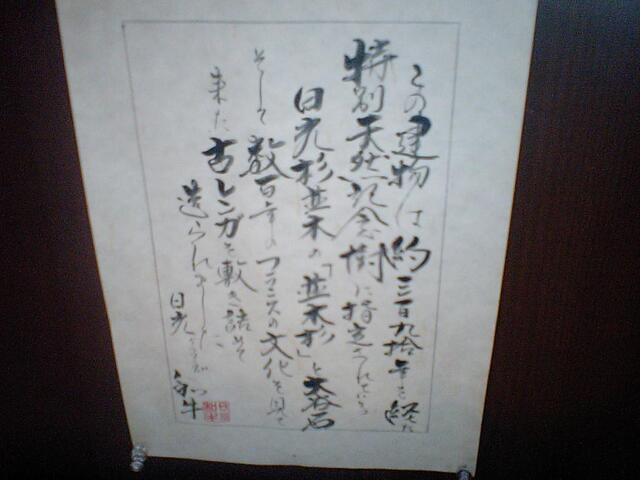 この建物は約三百九拾年を経た
特別天然記念樹に指定されている
日光杉並木の「並木杉」と大谷石
そして数百年のフランスの文化を見て
来た古レンガを敷き詰めて
造られました
日光 和牛